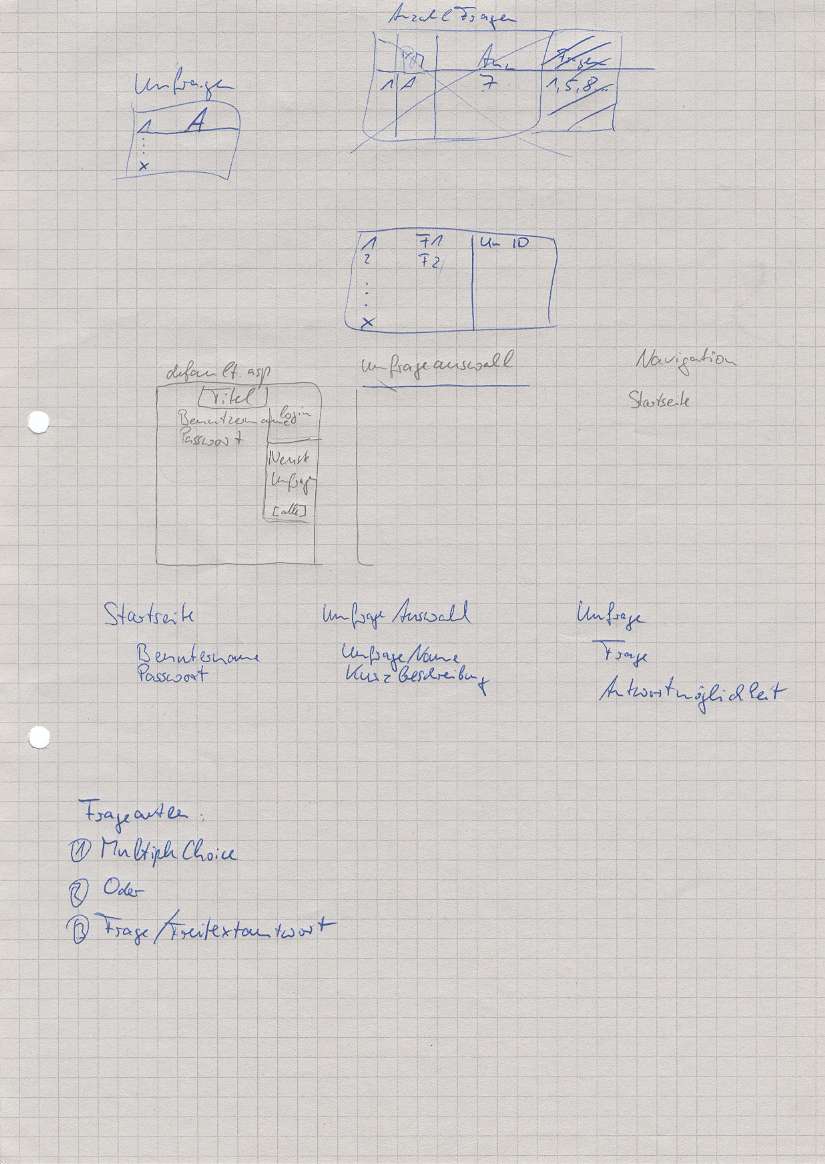 Anzahl Fragen
Anz. Fragen
1 A 7 1,5,8...
Umfragen
1 A
x
1 F1 Um ID
2 F2
x
default.asp
Titel
Benutzername login
Passwort
Neuste
Umfrage
[alle]
Umfrageauswahl
Navigation
Startseite
Startseite
Benutername
Passwort
Umfrage Auswahl
Umfrage Name
Kurzbeschreibung
Umfrage
Frage
Antwortmöglichkeit
Fragearten:
1 Multiple Choice
2 Oder
3 Frage/Freitextantwort